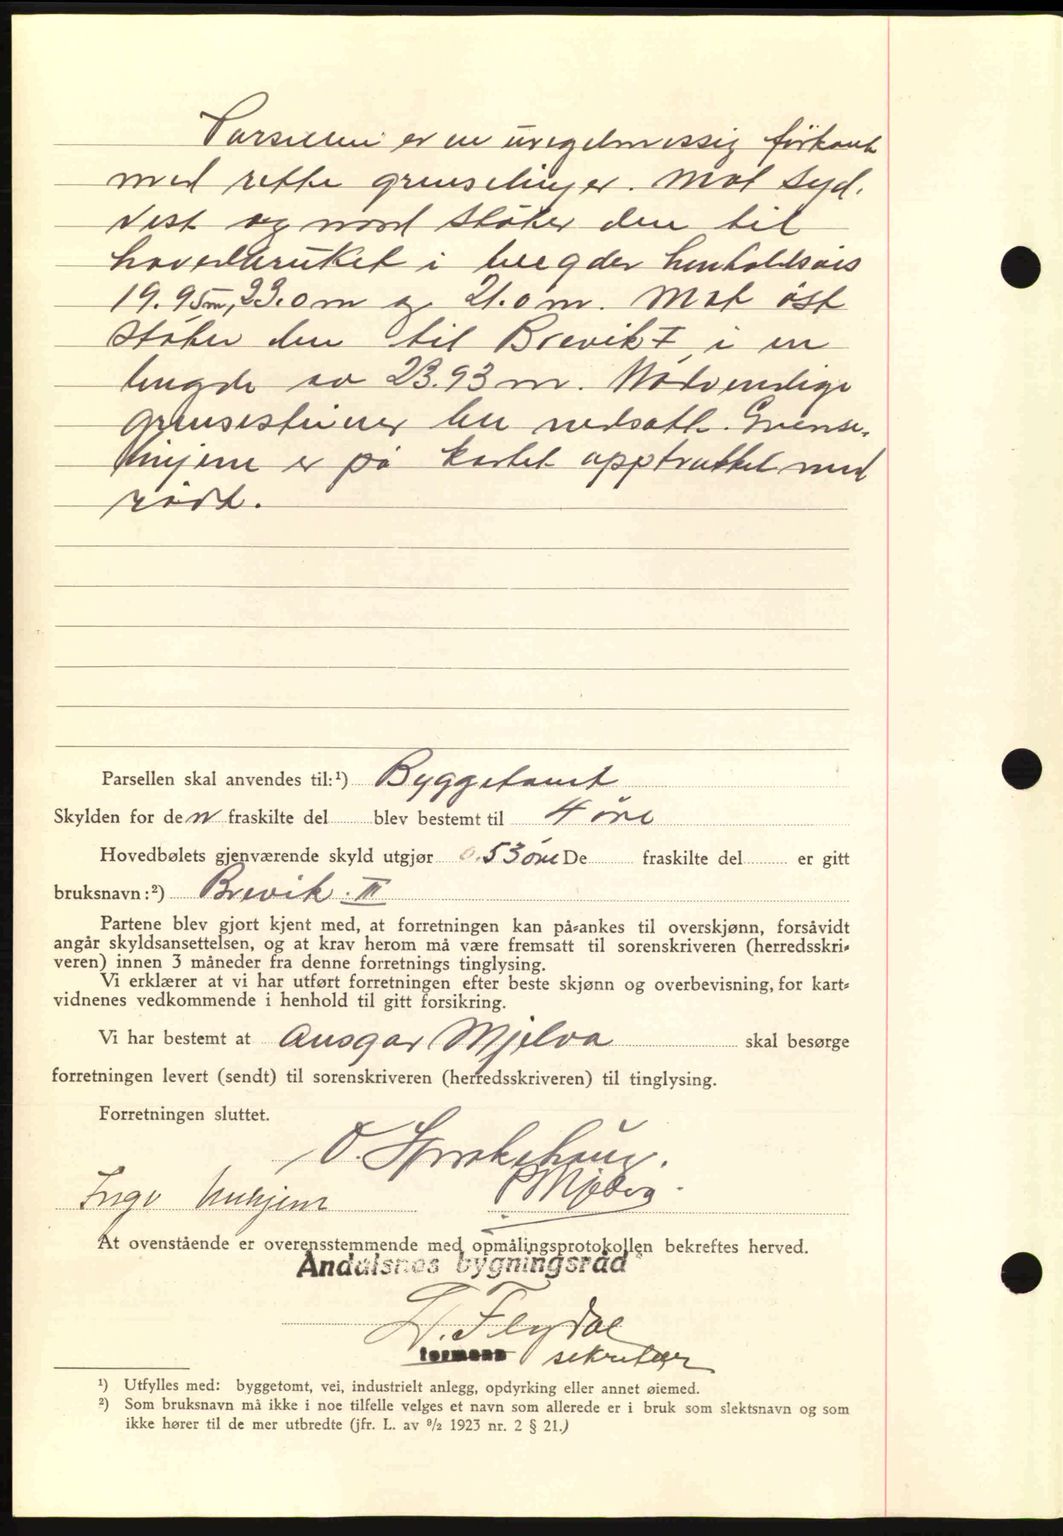 Parsellen er en uregelmessig firkant
med rette grenselinjer. Mot syd,
vest og nord støter den til
hovedbruket i lengder henholdsvis
19.95m, 23.0m og 21.0m. Mot øst
støter den til Brevik I i en
lengde av 23.93 m. Nødvendige
grensesteiner ble nedsatt. Grense-
linjene er på kartet opptrukket med
rødt.
Parsellen skal anvendes til:¹) Byggetomt
Skylden for den fraskilte del blev bestemt til 4 øre
Hovedbølets gjenværende skyld utgjør 0.53 øre De fraskilte del er gitt
bruksnavn:²) Brevik III
Partene blev gjort kjent med, at forretningen kan på-ankes til overskjønn, forsåvidt
angår skyldsansettelsen, og at krav herom må være fremsatt til sorenskriveren (herredsskri-
veren) innen 3 måneder fra denne forretnings tinglysing.
Vi erklærer at vi har utført forretningen efter beste skjønn og overbevisning, for kart-
vidnenes vedkommende i henhold til gitt forsikring.
Vi har bestemt at Ansgar Mjelva skal besørge
forretningen levert (sendt) til sorenskriveren (herredsskriveren) til tinglysing.
Forretningen sluttet.
O.
Inge P Mjelva
At ovenstående er overensstemmende med opmålingsprotokollen bekreftes herved.
Åndalsnes bygningsråd
Flydal
formann sekretær
¹) Utfylles med: byggetomt, vei, industrielt anlegg, opdyrking eller annet øiemed.
²) Som bruksnavn må ikke i noe tilfelle velges et navn som allerede er i bruk som slektsnavn og som
ikke hører til de mer utbredte (jfr. L. av ⁹/₂ 1923 nr. 2 § 21.)